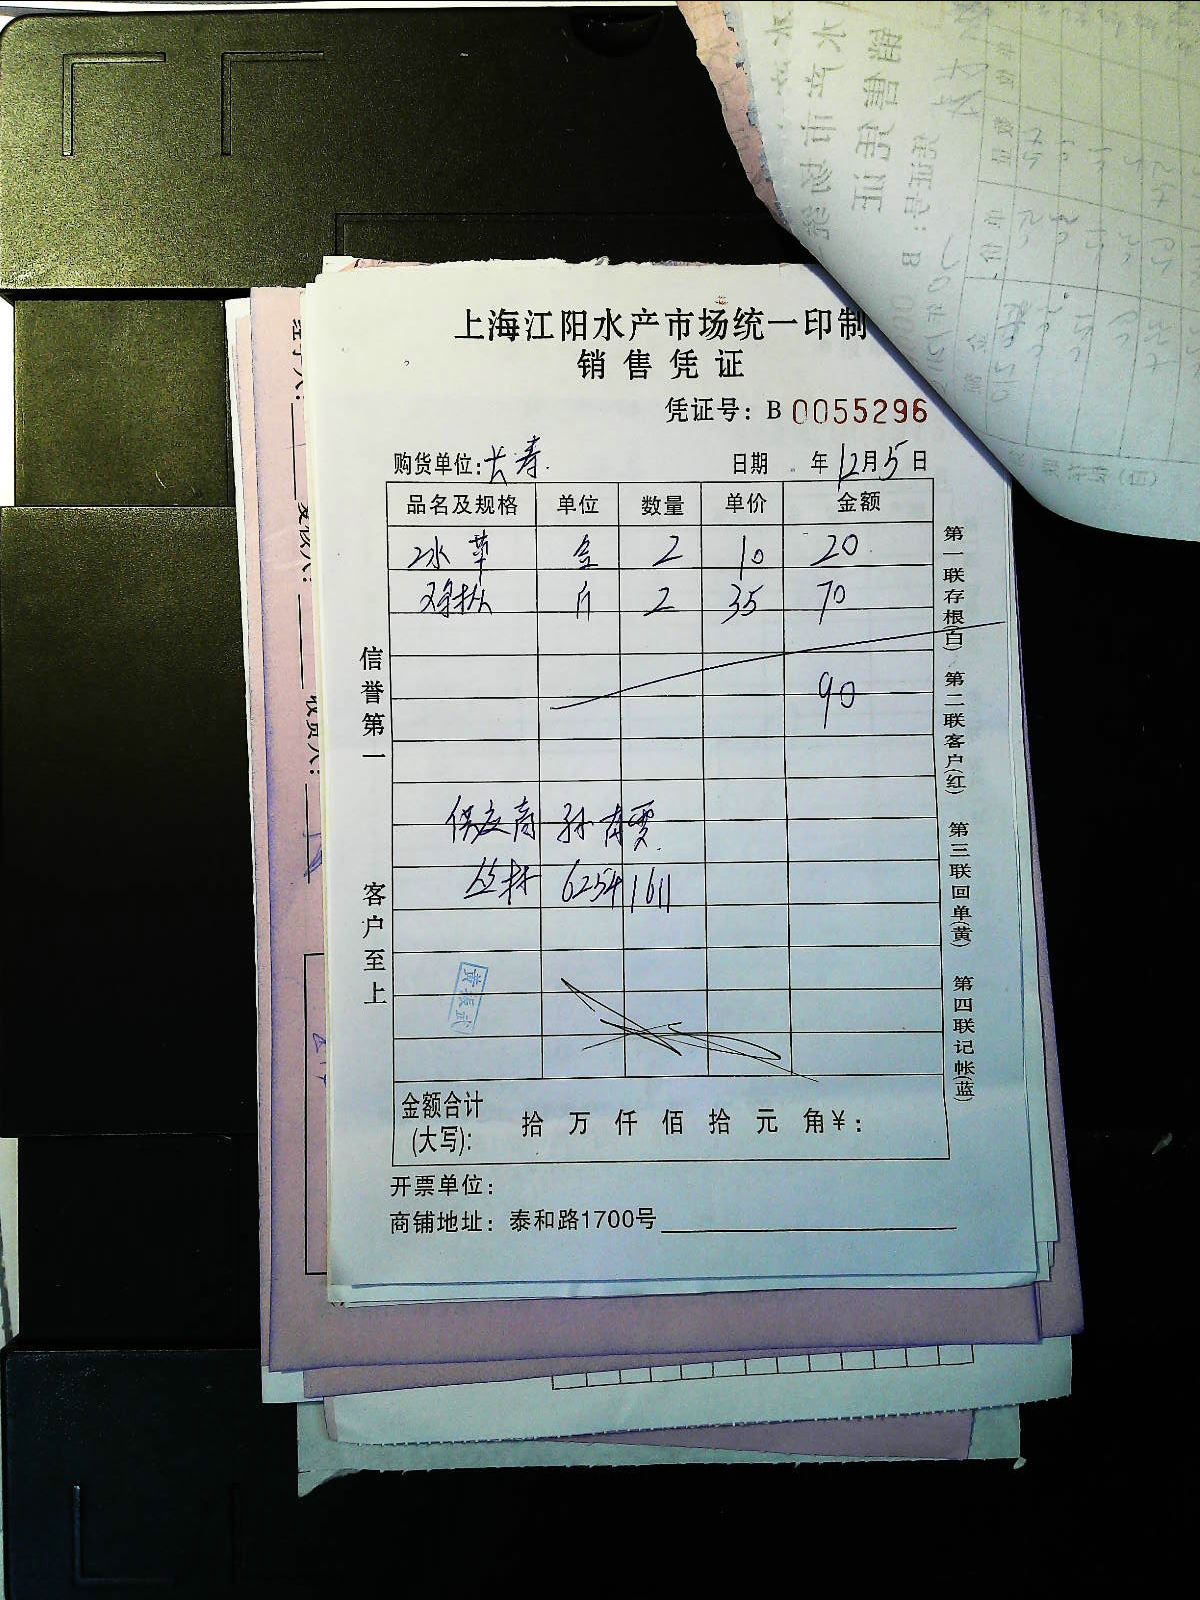 上海江阳水产市场统一印制
销售凭证
凭证号：B 0055296
购货单位：长寿 日期 年12月5日
品名及规格 单位 数量 单价 金额
冰草 盒 2 10 20
斤 2 35 70
90
供应商 孙
丛林 62541611
黄振武
金额合计(大写)： 拾 万 仟 佰 拾 元 角￥：
开票单位：
商铺地址：泰和路1700号
信誉第一 客户至上
第一联存根(白) 第二联客户(红) 第三联回单(黄) 第四联记帐(蓝)
收货人：